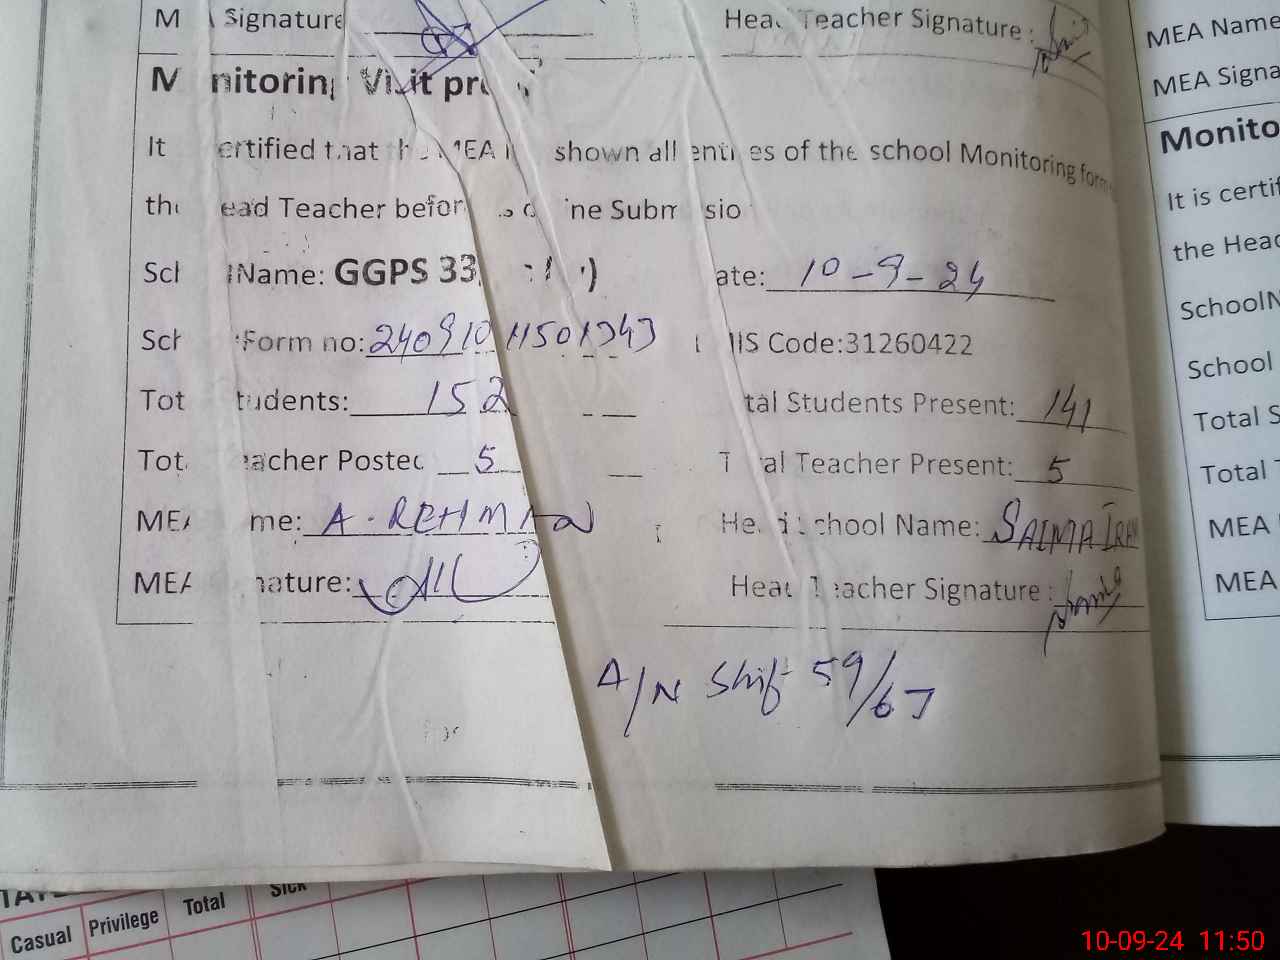 Signature Head Teacher Signature :
Monitoring Visit
It ertified that MEA shown all entries of the school Monitoring form
the ead Teacher before ine Submissio
Sch Name: GGPS 33 ate: 10-9-24
Sch Form no: 240910 MIS Code:31260422
Tot tudents: 152 tal Students Present: 141
Tot eacher Posted 5 Total Teacher Present: 5
MEA me: A. REHMAN Head School Name: SALMA IRAM
MEA nature: Head Teacher Signature :
A/N Shift 59/67
MEA Name
MEA Signa
Monito
It is certif
the Head
SchoolN
School
Total S
Total T
MEA
MEA
Casual Privilege Total Sick
10-09-24 11:50